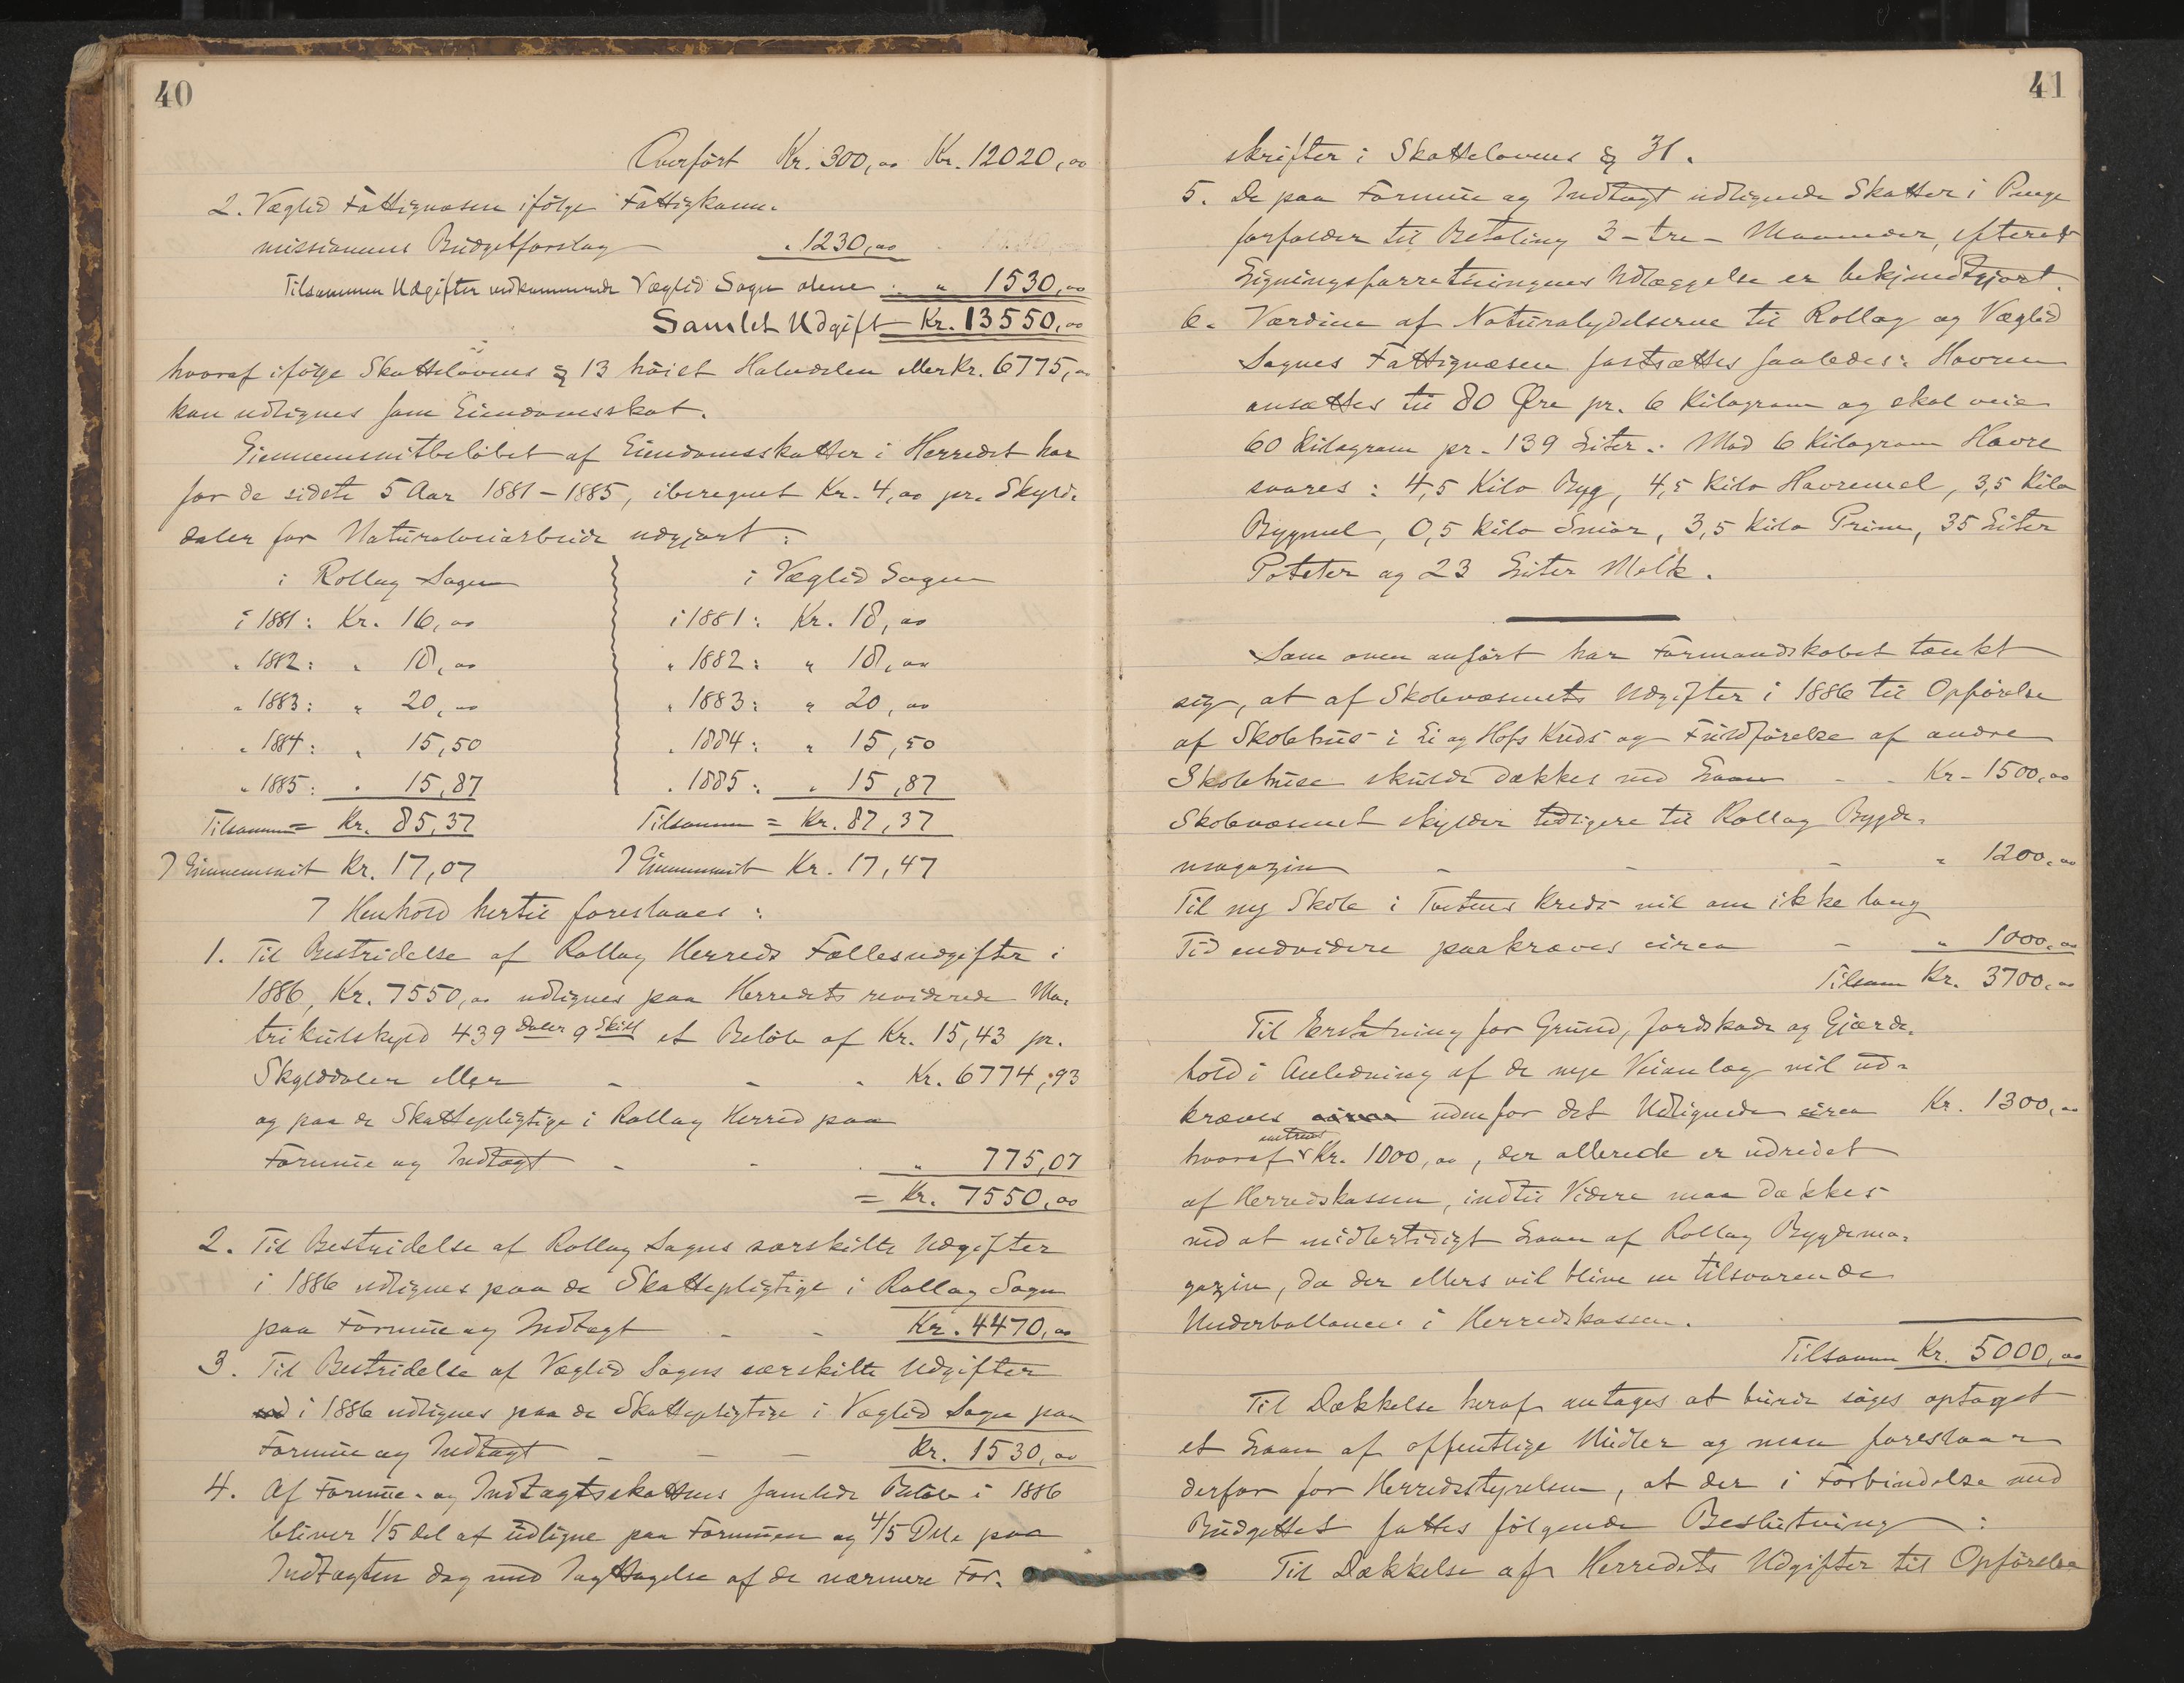 40
Overført Kr. 300,00 Kr. 12020,00
2. Væglid Fattigvæsen ifølge Fattigkom-
missionens Budgetforslag „ 1230,00
Tilsammen Udgifter vedkommende Væglid Sogn alene „ 1530,00
Samlet Udgift Kr. 13550,00
hvoraf ifølge Skattelovens § 13 høiest Halvdelen eller Kr. 6775,00
kan udlignes som Eiendomsskat.
Giennemsnitbeløbet af Eiendomsskatter i Herredet har
for de sidste 5 Aar 1881-1885, iberegnet Kr. 4,00 pr. Skyld-
daler for Naturalveiarbeide udgjort:
i Rollag Sogn
i 1881: Kr. 16,00
„ 1882: „ 18,00
„ 1883: „ 20,00
„ 1884: „ 15,50
„ 1885: „ 15,87
Tilsammen = Kr. 85,37
I Giennemsnit Kr. 17,07
i Væglid Sogn
i 1881: Kr. 18,00
„ 1882: „ 18,00
„ 1883: „ 20,00
„ 1884: „ 15,50
„ 1885: „ 15,87
Tilsammen = Kr. 87,37
I Giennemsnit Kr. 17,47
I Henhold hertil foreslaaes:
1. Til Bestridelse af Rollag Herreds Fællesudgifter i
1886, Kr. 7550,00 udlignes paa Herredets reviderede Ma-
trikulskyld 439 Daler 9 Skill et Beløb af Kr. 15,43 pr.
Skylddaler eller - - „ Kr. 6774,93
og paa de Skattepligtige i Rollag Herred paa
Formue og Indtægt - - „ 775,07
= Kr. 7550,00
2. Til Bestridelse af Rollag Sogns særskilte Udgifter
i 1886 udlignes paa de Skattepligtige i Rollag Sogn
paa Formue og Indtægt - - Kr. 4470,00
3. Til Bestridelse af Væglid Sogns særskilte Udgifter
i 1886 udlignes paa de Skattepligtige i Væglid Sogn paa
Formue og Indtægt - - - Kr. 1530,00
4. Af Formue- og Indtægtsskattens samlede Beløb i 1886
bliver 1/5 del at udligne paa Formuen og 4/5 Dele paa
Indtægten dog med Iagttagelse af de nærmere For-
41
skrifter i Skattelovens § 31.
5. De paa Formue og Indtægt udlignede Skatter i Penge
forfalder til Betaling 3 - tre - Maaneder, efterat
Ligningsforretningens Udlæggelse er bekjendtgjort.
6. Værdien af Naturalydelserne til Rollag og Væglid
Sognes Fattigvæsen fastsættes saaledes: Havren
ansættes til 80 Øre pr. 6 Kilogram og skal veie
60 Kilogram pr. 139 Liter. Mod 6 Kilogram Havre
svares: 4,5 Kilo Byg, 4,5 Kilo Havremel, 3,5 Kilo
Bygmel, 0,5 Kilo Smør, 3,5 Kilo Prim, 35 Liter
Poteter og 23 Liter Melk.
Som oven anført har Formandskabet tænkt
sig, at af Skolevæsenets Udgifter i 1886 til Opførelse
af Skolehus i Ei og Hofs Kreds og Fuldførelse af andre
Skolehuse skulde dækkes ved Laan - - Kr. 1500,00
Skolevæsenet skylder tidligere til Rollag Bygde-
magazin - - - „ 1200,00
Til ny Skole i Kreds vil om ikke lang
Tid endvidere paakræves circa - „ 1000,00
Tilsam Kr. 3700,00
Til Erstatning for Grund, Jordskade og Gjærde-
hold i Anledning af de nye Veianlæg vil ud-
kræves circa udenfor det Udlignede circa Kr. 1300,00
hvoraf omtrent Kr. 1000,00, der allerede er udredet
af Herredskassen, indtil Videre maa dækkes
ved at midlertidigt Laan af Rollag Bygdema-
gazin, da der ellers vil blive en tilsvarende
Underballance i Herredskassen.
Tilsammen Kr. 5000,00
Til Dækkelse heraf antages at burde søges optaget
et Laan af offentlige Midler og man foreslaar
derfor for Herredsstyrelsen, at der i Forbindelse med
Budgettet fattes følgende Beslutning:
Til Dækkelse af Herredets Udgifter til Opførelse